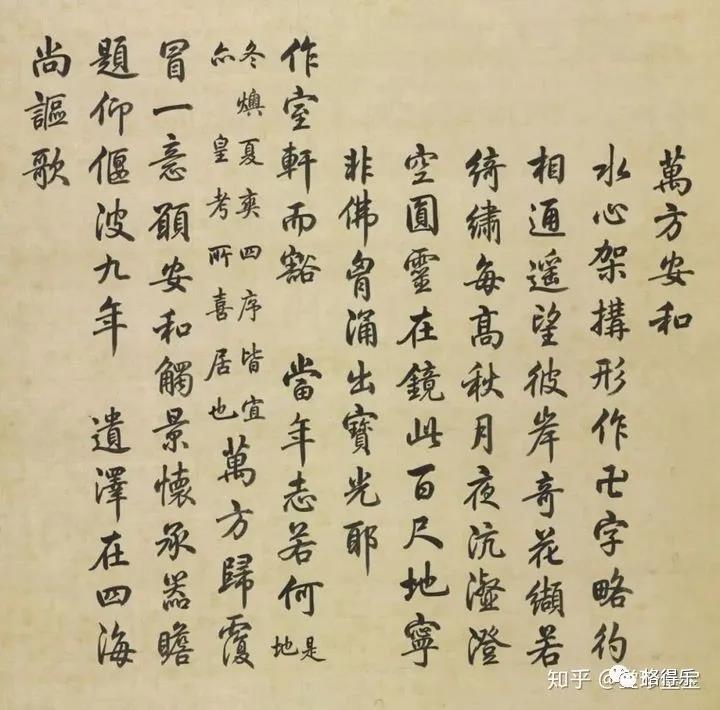 萬方安和
水心架構形作卍字略彴
相通遥望彼岸奇花纈若
綺繡每高秋月夜沆瀣澄
空圓靈在鏡此百尺地寧
非佛胷涌出寶光耶
作室軒而豁 當年志若何 是地
冬燠夏爽四序皆宜
亦 皇考所喜居也 萬方歸覆
冒一意願安和觸景懷承器瞻
題仰偃波九年 遺澤在四海
尚謳歌
知乎 @